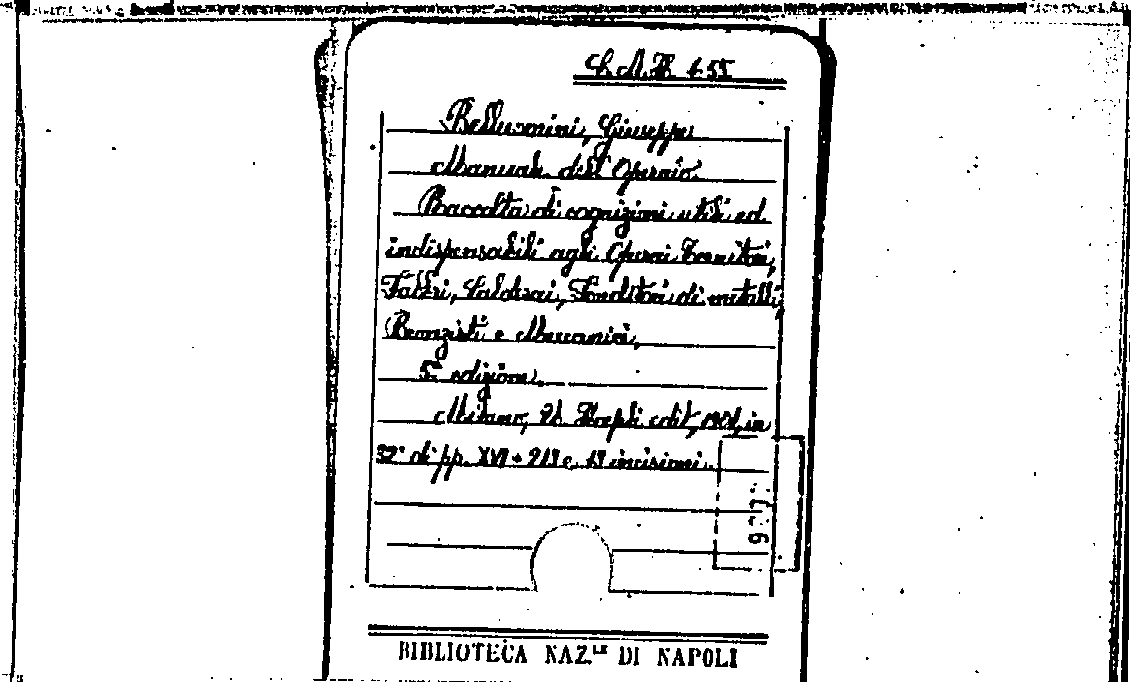 Belluomini, Giuseppe
Manuale dell'Operaio.
Raccolta di cognizioni utili ed
indispensabili agli Operai Tornitori,
Fabbri, Calderai, Fonditori di metalli,
Bronzisti e Meccanici,
5ª edizione.
Milano, U. Hoepli edit, in
32° di pp. XVI + 213 e, 19 incisioni.
BIBLIOTECA NAZ.LE DI NAPOLI